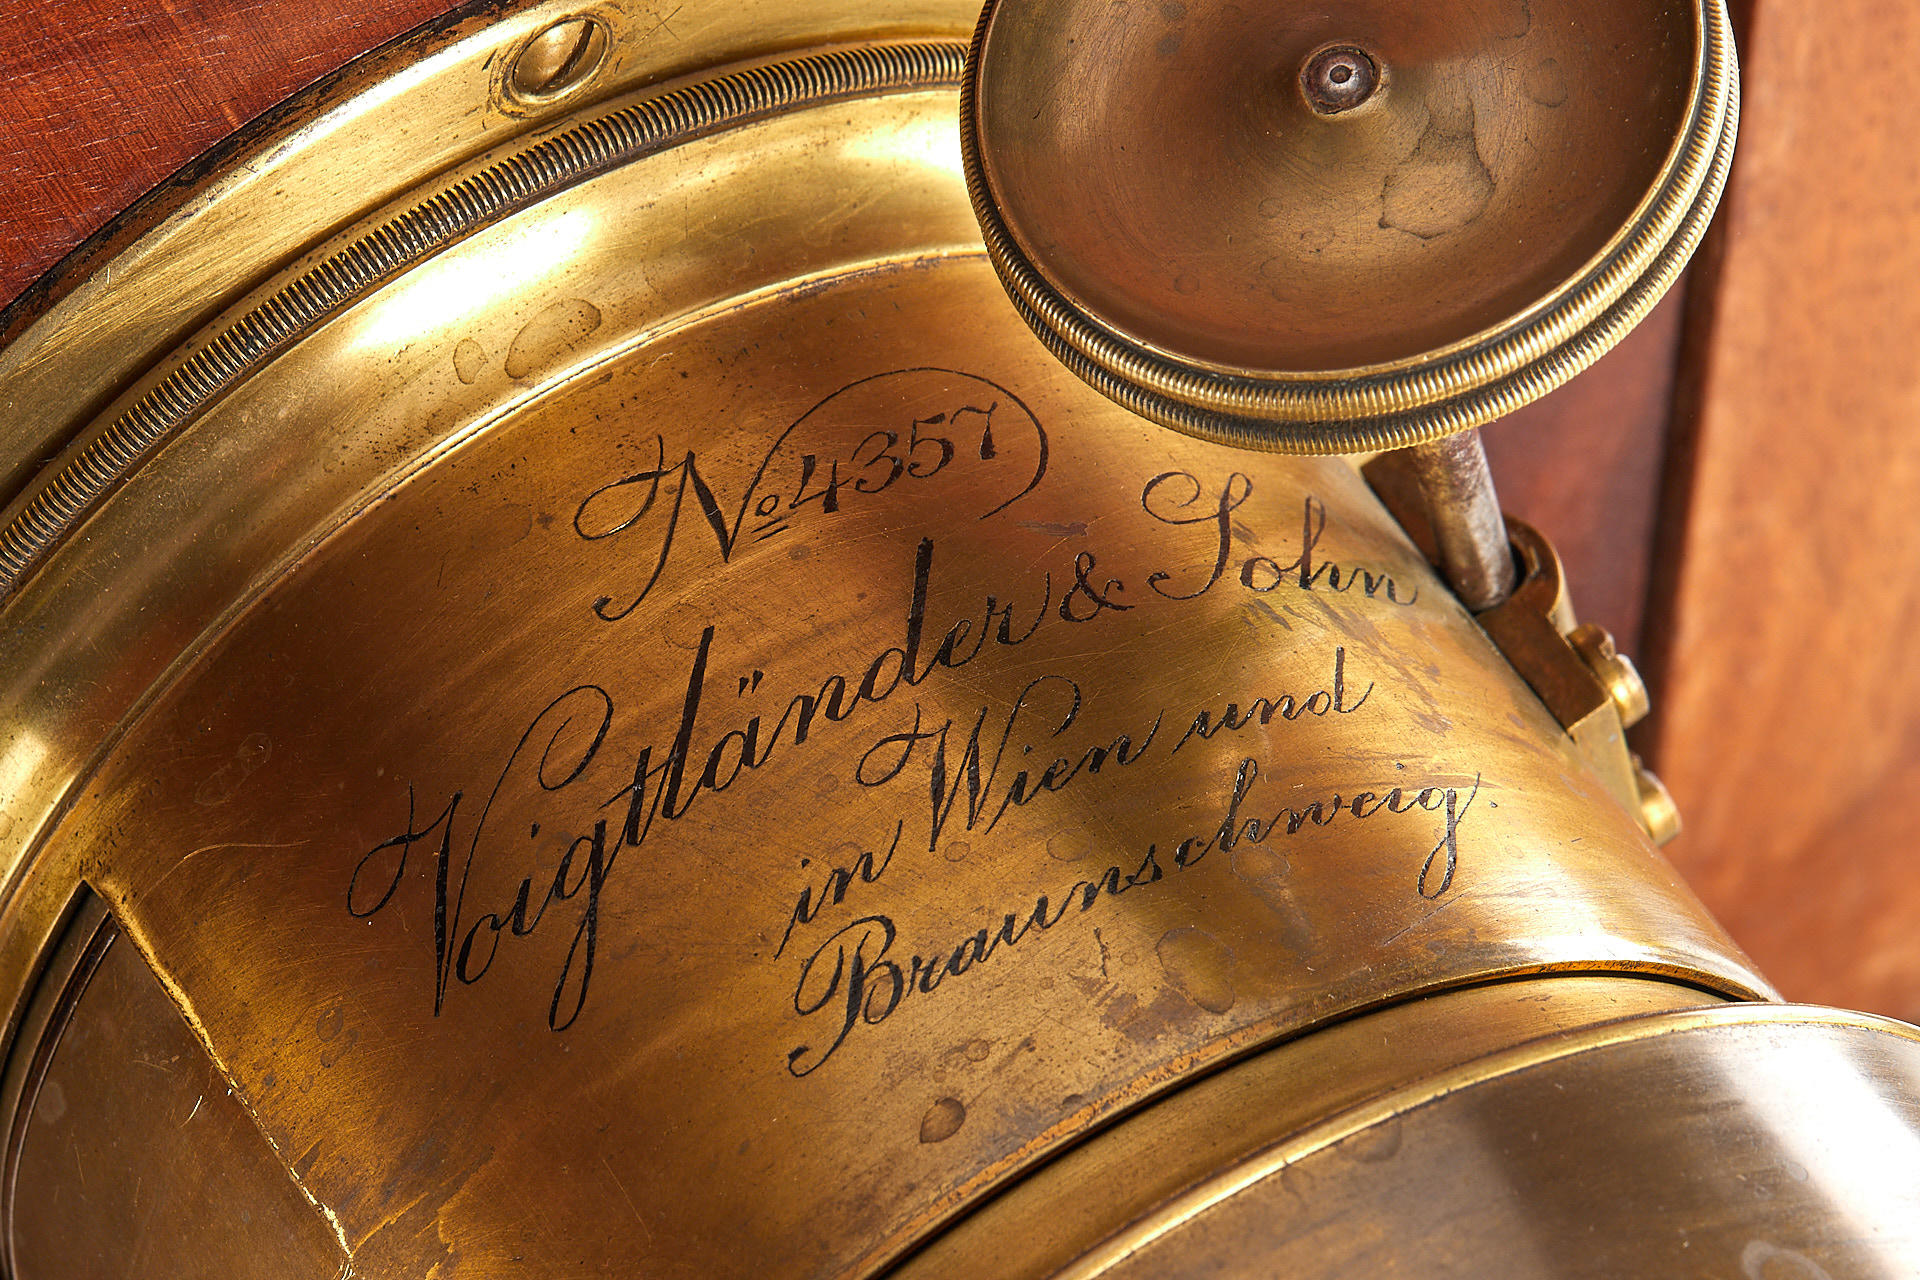 No 4357
Voigtländer & Sohn
in Wien und
Braunschweig.